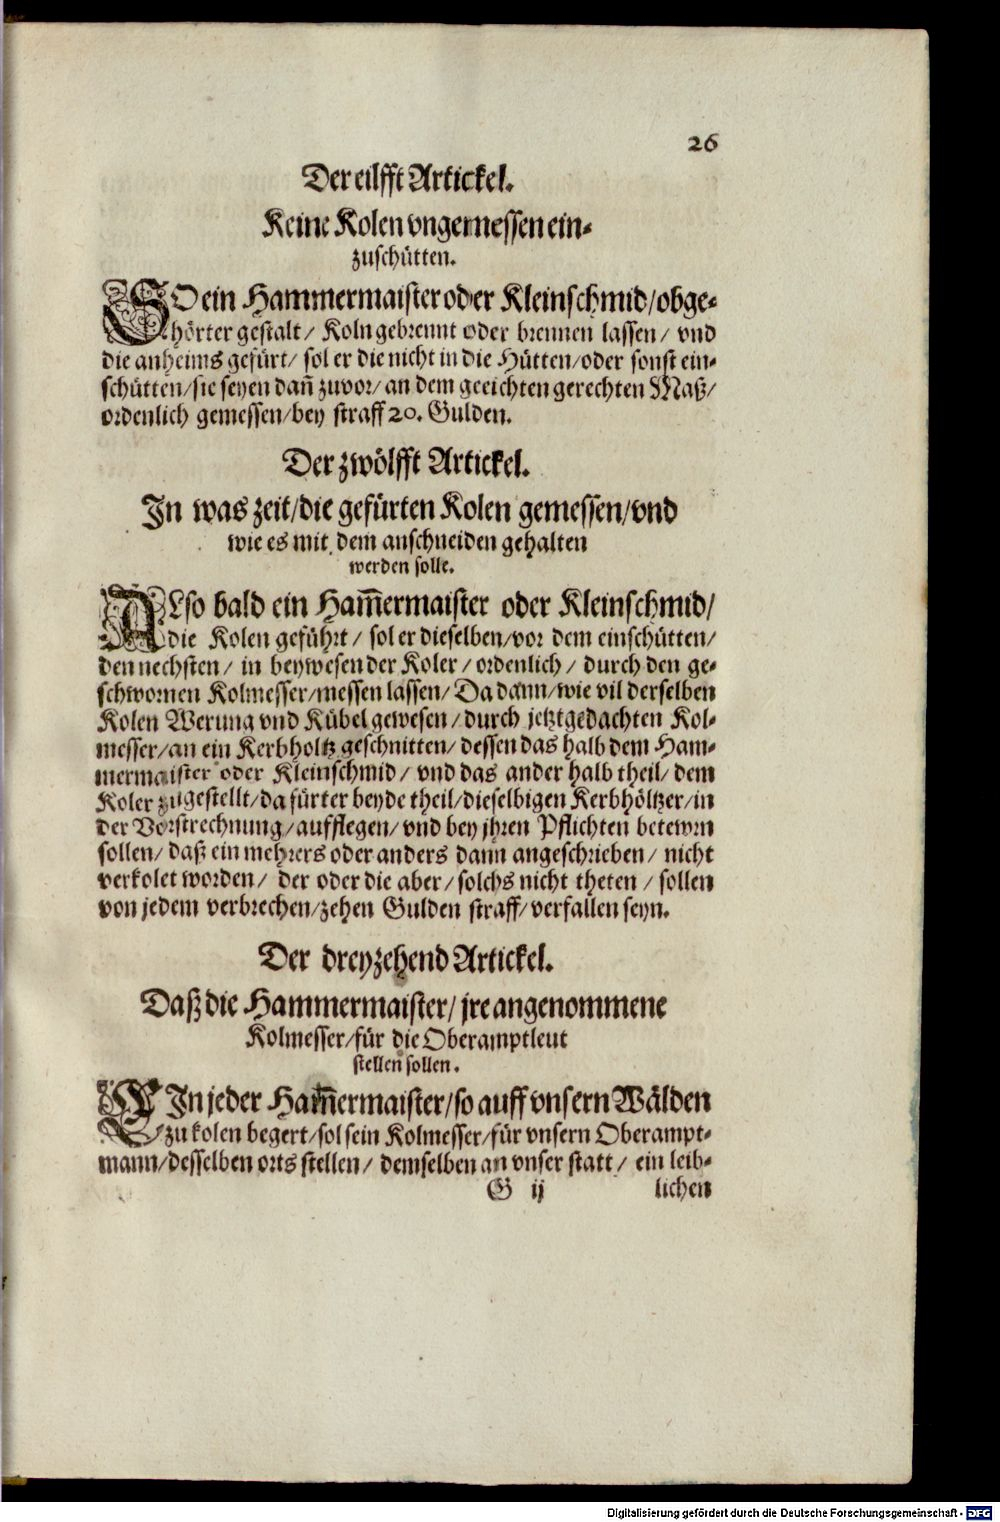 26
Der eilfft Artickel.
Keine Kolen vngemessen ein-
zuschütten.
SO ein Hammermaister oder Kleinschmid/obge-
hörter gestalt/ Koln gebrennt oder brennen lassen/ vnd
die anheims gefürt/ sol er die nicht in die Hütten/oder sonst ein-
schütten/sie seyen dañ zuvor/ an dem geeichten gerechten Maß/
ordenlich gemessen/bey straff 20. Gulden.
Der zwölfft Artickel.
In was zeit/die gefürten Kolen gemessen/vnd
wie es mit dem anschneiden gehalten
werden solle.
ALso bald ein Ham̄ermaister oder Kleinschmid/
die Kolen geführt/ sol er dieselben/vor dem einschütten/
den nechsten/ in beywesen der Koler/ ordenlich/ durch den ge-
schwornen Kolmesser/messen lassen/ Da dann/wie vil derselben
Kolen Werung vnd Kübel gewesen/ durch jetztgedachten Kol-
messer/an ein Kerbholtz geschnitten/ dessen das halb dem Ham-
mermaister oder Kleinschmid/ vnd das ander halb theil/ dem
Koler zugestellt/da fürter beyde theil/dieselbigen Kerbhöltzer/in
der Vorstrechnung/aufflegen/ vnd bey jhren Pflichten betewrn
sollen/ daß ein mehrers oder anders dann angeschrieben/ nicht
verkolet worden/ der oder die aber/ solchs nicht theten/ sollen
von jedem verbrechen/zehen Gulden straff/ verfallen seyn.
Der dreyzehend Artickel.
Daß die Hammermaister/ jre angenommene
Kolmesser/für die Oberamptleut
stellen sollen.
EIn jeder Ham̄ermaister/so auff vnsern Wälden
zu kolen begert/sol sein Kolmesser/für vnsern Oberampt-
mann/desselben orts stellen/ demselben an vnser statt/ ein leib-
G ij lichen
Digitalisierung gefördert durch die Deutsche Forschungsgemeinschaft - DFG